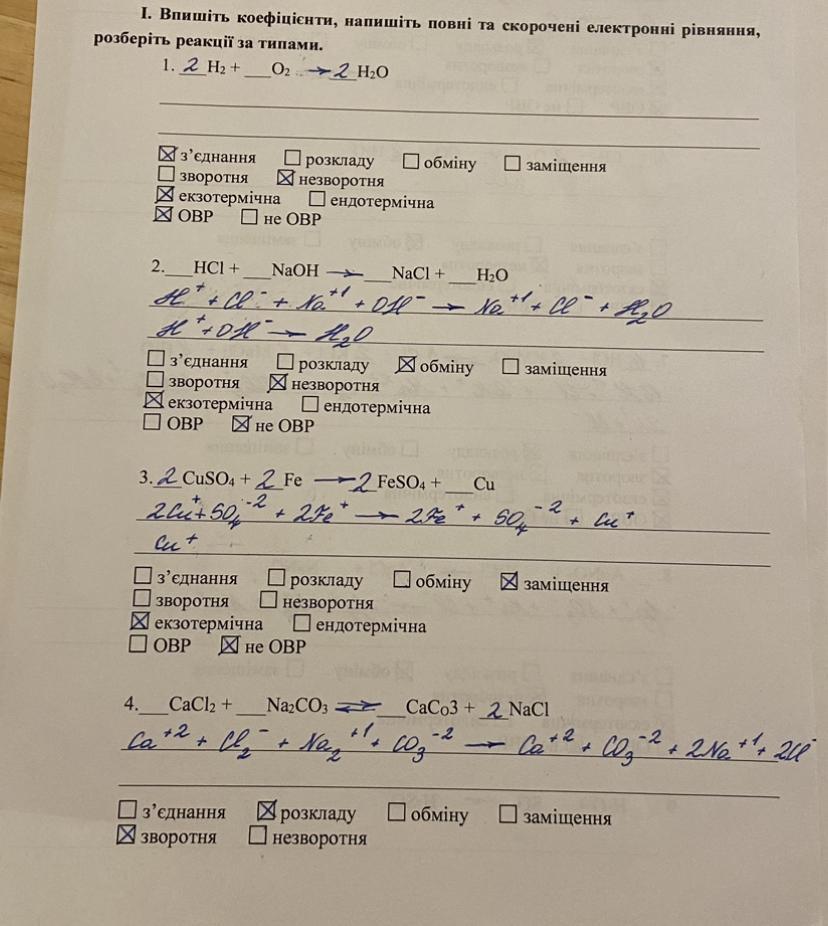 I. Впишіть коефіцієнти, напишіть повні та скорочені електронні рівняння,
розберіть реакції за типами.
1. 2 H₂ + ___O₂ → 2 H₂O
☒ з’єднання ☐ розкладу ☐ обміну ☐ заміщення
☐ зворотня ☒ незворотня
☒ екзотермічна ☐ ендотермічна
☒ ОВР ☐ не ОВР
2.___HCl + ___NaOH → ___NaCl + ___H₂O
H⁺ + Cl⁻ + Na⁺¹ + OH⁻ → Na⁺¹ + Cl⁻ + H₂O
H⁺ + OH⁻ → H₂O
☐ з’єднання ☐ розкладу ☒ обміну ☐ заміщення
☐ зворотня ☒ незворотня
☒ екзотермічна ☐ ендотермічна
☐ ОВР ☒ не ОВР
3. 2 CuSO₄ + 2 Fe → 2 FeSO₄ + ___Cu
2Cu⁺ + SO₄⁻² + 2Fe⁺ → 2Fe⁺ + SO₄⁻² + Cu⁺
Cu⁺
☐ з’єднання ☐ розкладу ☐ обміну ☒ заміщення
☐ зворотня ☐ незворотня
☒ екзотермічна ☐ ендотермічна
☐ ОВР ☒ не ОВР
4.___CaCl₂ + ___Na₂CO₃ ⇌ ___CaCo3 + 2 NaCl
Ca⁺² + Cl₂⁻ + Na₂⁺¹ + CO₃⁻² → Ca⁺² + CO₃⁻² + 2Na⁺¹ + 2Cl⁻
☐ з’єднання ☒ розкладу ☐ обміну ☐ заміщення
☒ зворотня ☐ незворотня